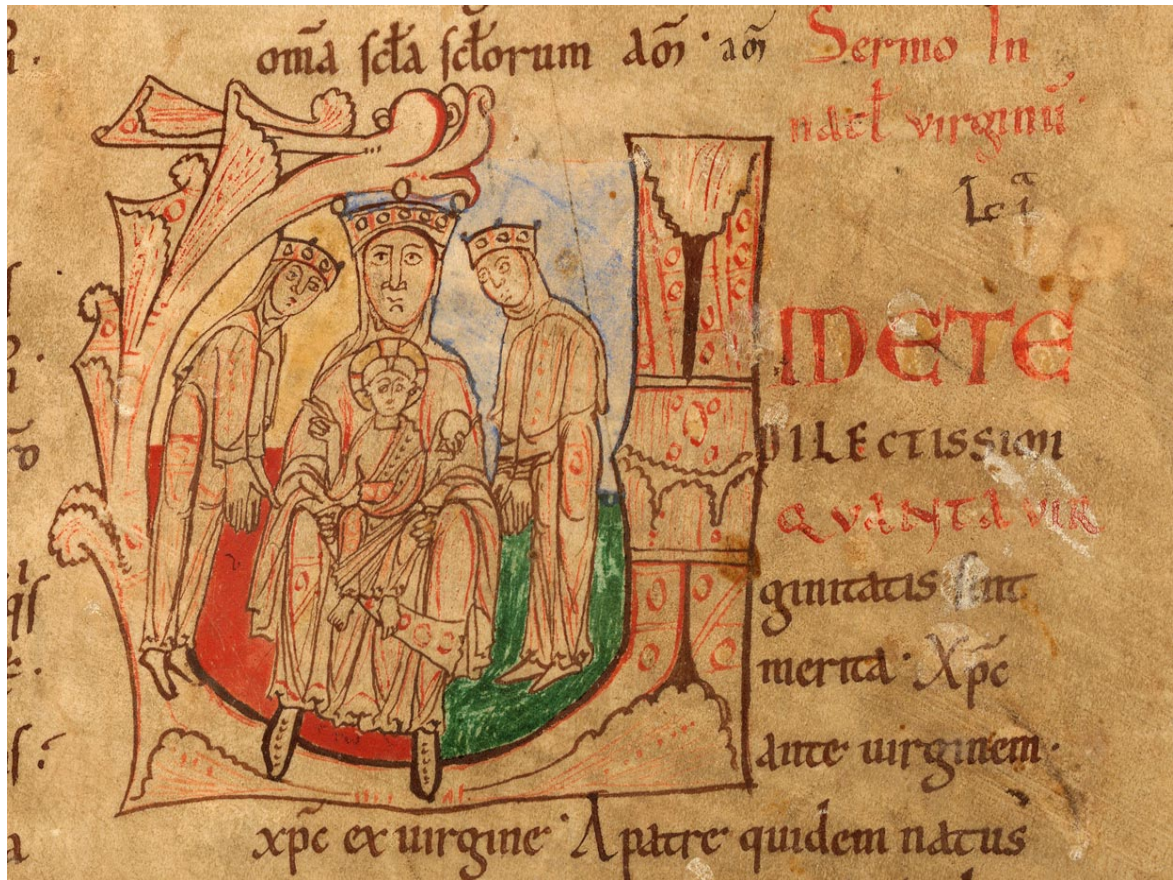 om̄a sc̄ta sc̄torum am̄ · am̄
Sermo In
natl̄ virginū ·
Lc̄ i ͣ
VIDETE
DILECTISSIMI
QVANTA VIR
ginitatis sint
merita · Xp̄c
ante uirginem ·
xp̄c ex uirgine · A patre quidem natus